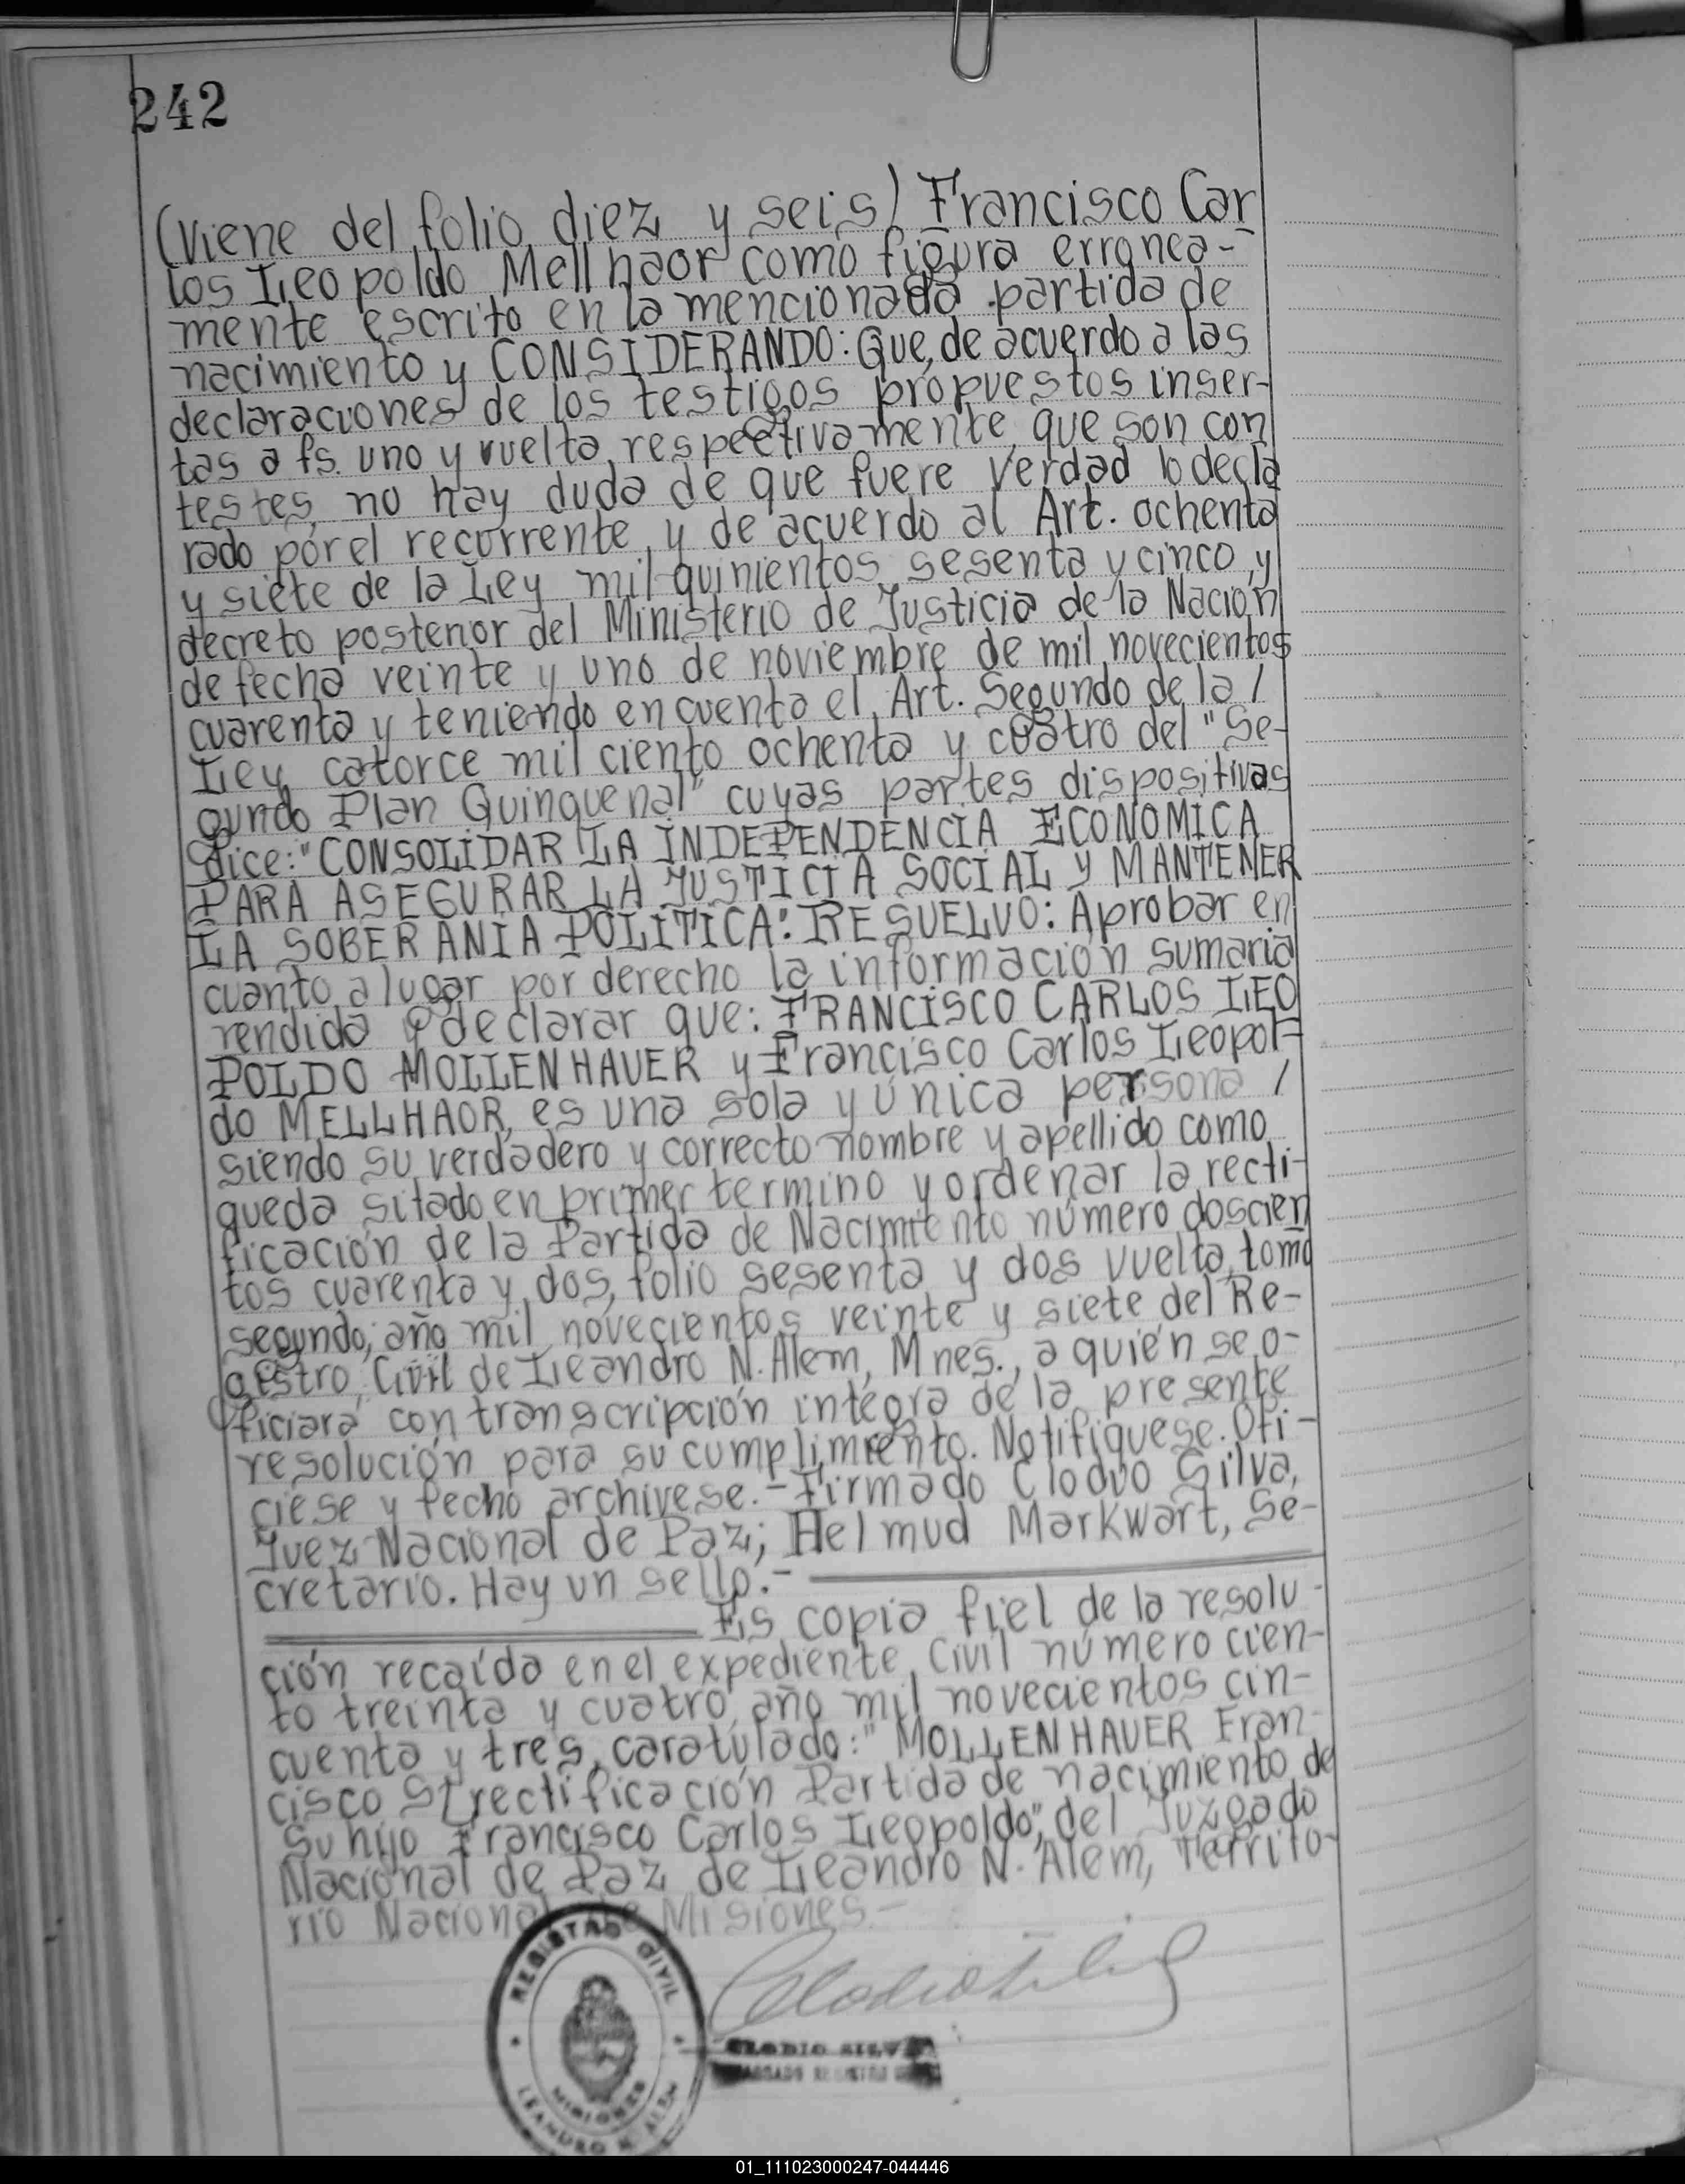 242
(Viene del folio diez y seis) Francisco Car
los Leopoldo Mellhaor como figura erronea-
mente escrito en la mencionada partida de
nacimiento y CONSIDERANDO: Que, de acuerdo a las
declaraciones de los testigos propuestos inser-
tas a fs. uno y vuelta, respectivamente, que son con
testes, no hay duda de que fuere verdad lo decla
rado por el recurrente, y de acuerdo al Art. ochenta
y siete de la Ley mil quinientos sesenta y cinco, y
decreto posterior del Ministerio de Justicia de la Nación
de fecha veinte y uno de noviembre de mil novecientos
cuarenta y teniendo en cuenta el Art. Segundo de la /
Ley catorce mil ciento ochenta y cuatro del "Se-
gundo Plan Quinquenal" cuyas partes dispositivas
dice: "CONSOLIDAR LA INDEPENDENCIA ECONOMICA
PARA ASEGURAR LA JUSTICIA SOCIAL y MANTENER
LA SOBERANIA POLITICA": RESUELVO: Aprobar en
cuanto a lugar por derecho la información sumaria
rendida y declarar que: FRANCISCO CARLOS LEO
POLDO MOLLENHAUER y Francisco Carlos Leopol-
do MELLHAOR, es una sola y única persona /
siendo su verdadero y correcto nombre y apellido como
queda sitado en primer termino y ordenar la recti-
ficación de la Partida de Nacimiento número doscien
tos cuarenta y dos, folio sesenta y dos vuelta, tomo
segundo, año mil novecientos veinte y siete del Re-
gistro Civil de Leandro N. Alem, Mnes., a quién se o-
ficiará con transcripción integra de la presente
resolución para su cumplimiento. Notifiquese. Ofi-
ciese y fecho archivese.- Firmado Clodio Silva,
Juez Nacional de Paz; Helmud Markwart, Se-
cretario. Hay un sello.-
Es copia fiel de la resolu-
ción recaída en el expediente Civil número cien-
to treinta y cuatro, año mil novecientos cin-
cuenta y tres, caratulado: "MOLLENHAUER Fran-
cisco S/rectificación Partida de nacimiento de
Su hijo Francisco Carlos Leopoldo", del Juzgado
Nacional de Paz de Leandro N. Alem, Territo-
rio Nacional de Misiones.-
REGISTRO CIVIL
MISIONES
LEANDRO N. ALEM
CLODIO SILVA
01_111023000247-044446